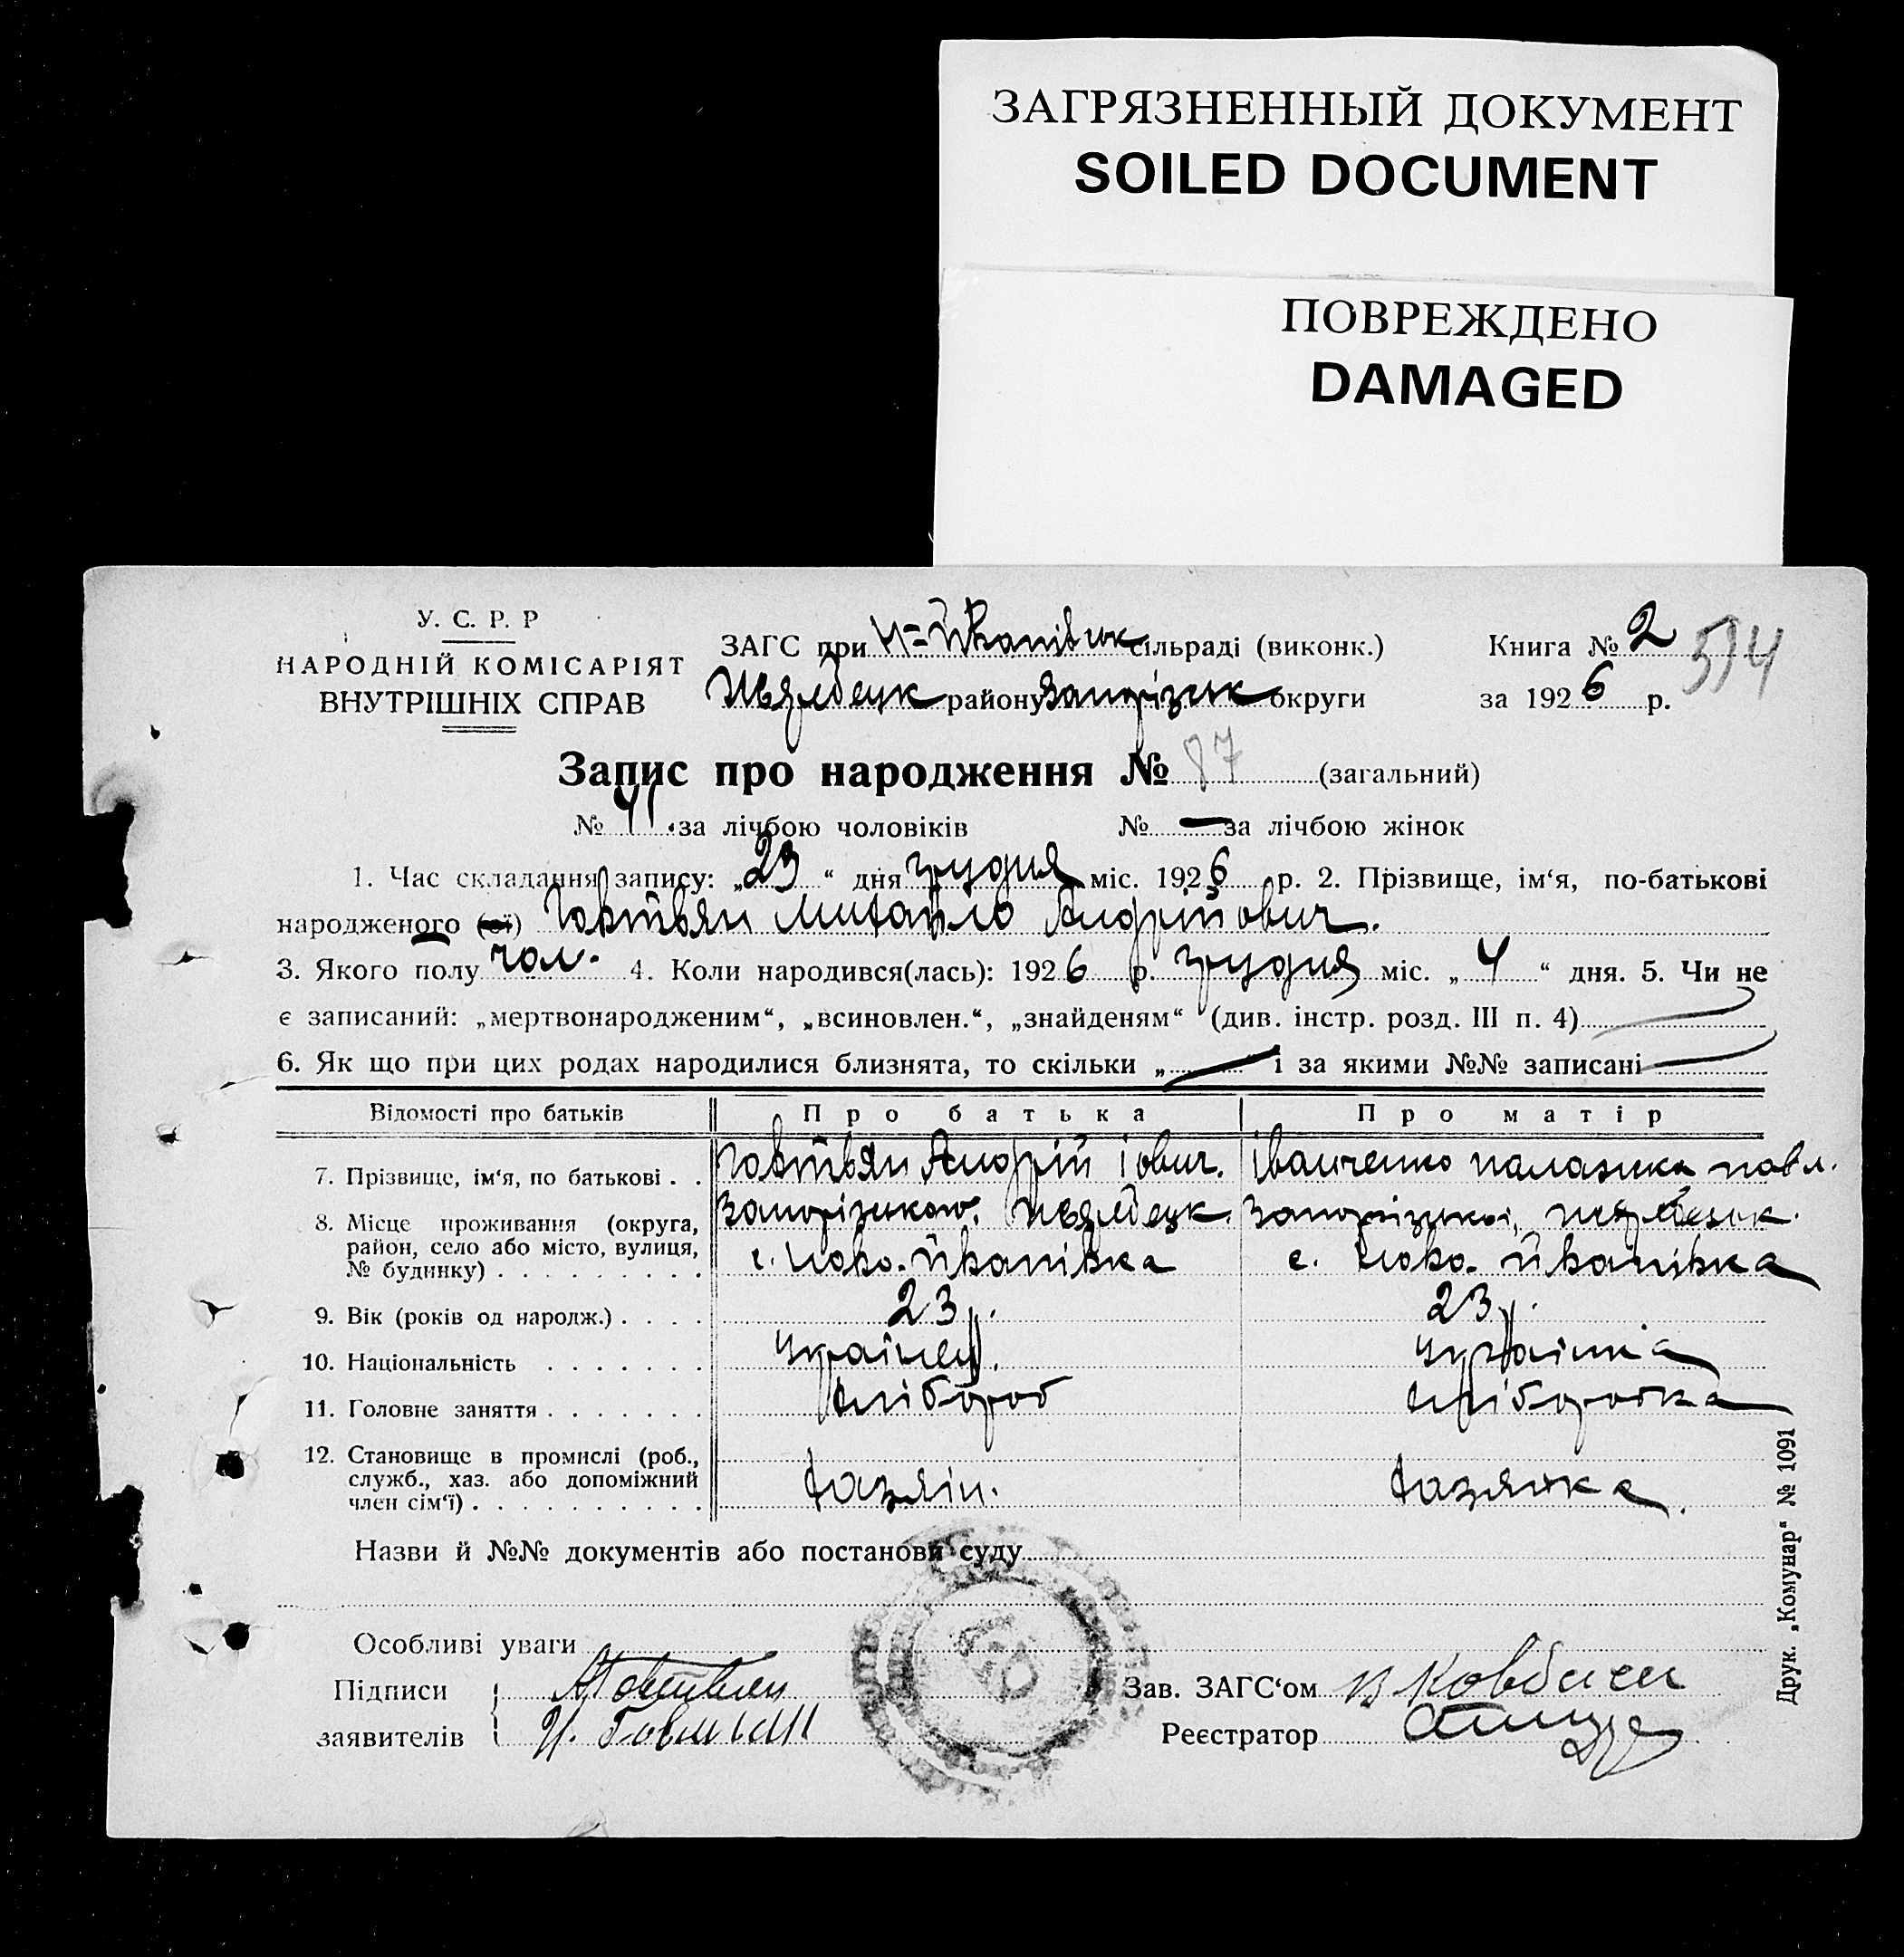 ЗАГРЯЗНЕННЫЙ ДОКУМЕНТ
SOILED DOCUMENT
ПОВРЕЖДЕНО
DAMAGED
У. С. Р. Р
НАРОДНІЙ КОМІСАРІЯТ
ВНУТРІШНІХ СПРАВ
ЗАГС при сільраді (виконк.)
району Запорізьк округи
Книга № 2
за 1926 р.
Запис про народження № 87 (загальний)
№ 41 за лічбою чоловіків № — за лічбою жінок
1. Час складання запису: „23“ дня грудня міс. 1926 р. 2. Прізвище, ім‘я, по-батькові
народженого (ої) Говтвян Михайло Андрійович.
3. Якого полу чол. 4. Коли народився(лась): 1926 р. грудня міс. „4“ дня. 5. Чи не
є записаний: „мертвонародженим“, „всиновлен.“, „знайденям“ (див. інстр. розд. III п. 4)
6. Як що при цих родах народилися близнята, то скільки „—“ і за якими №№ записані —
Відомості про батьків Про батька Про матір
7. Прізвище, ім‘я, по батькові . . Говтвян Андрій Іович. Іванченко Палажка Павл.
8. Місце проживання (округа,
район, село або місто, вулиця,
№ будинку) . . . . . . . . .
с. Ново- с. Ново-
9. Вік (років од народж.) . . . . 23 р. 23 р.
10. Національність . . . . . . . Українец. Українка
11. Головне заняття . . . . . . . Хлібороб Хліборобка
12. Становище в промислі (роб.,
служб., хаз. або допоміжний
член сім‘ї) . . . . . . . . . . Хазяїн. Хазяйка.
Назви й №№ документів або постанови суду
Особливі уваги
Підписи
заявителів
А Говтвян
Зав. ЗАГС‘ом
Реєстратор
Друк. „Комунар“ № 1091